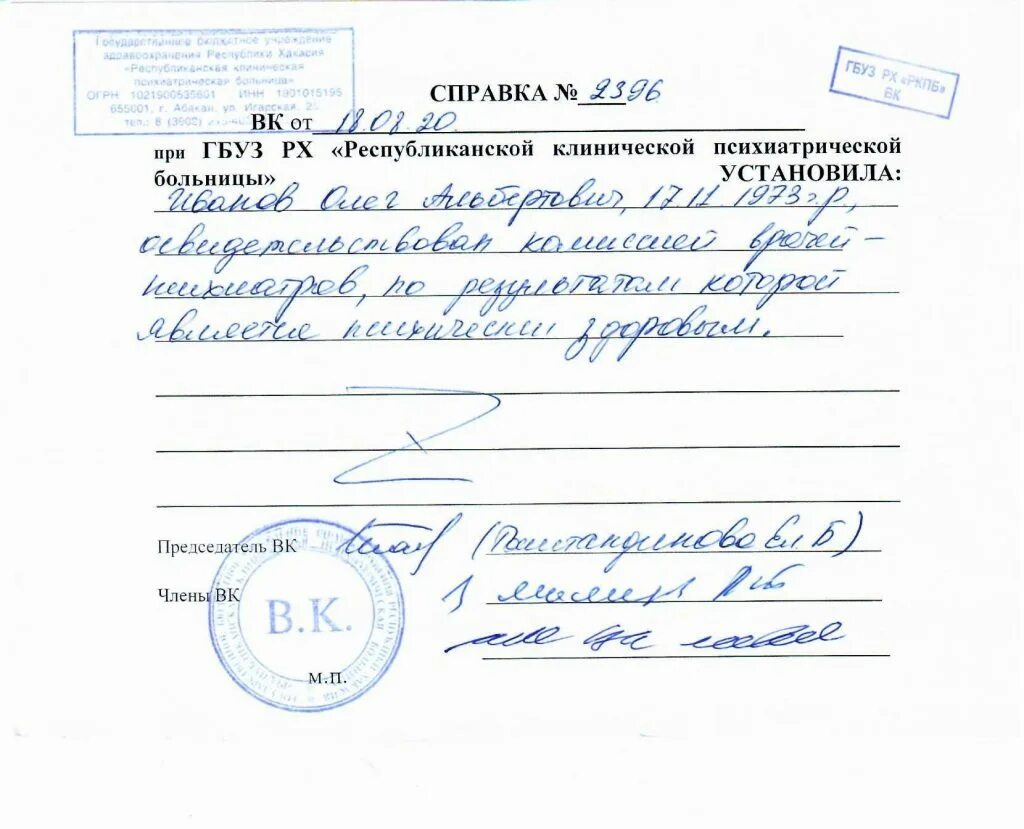 Государственное бюджетное учреждение
здравоохранения Республики Хакасия
«Республиканская клиническая
психиатрическая больница»
ОГРН 1021900535601 ИНН 1901015195
655001, г. Абакан, ул. Игарская,
тел.: 8 (3902)
ГБУЗ РХ «РКПБ»
ВК
СПРАВКА № 2396
ВК от 18.08.20.
при ГБУЗ РХ «Республиканской клинической психиатрической
больницы» УСТАНОВИЛА:
Иванов Олег Альбертович, 17.11.1973 г.р.,
освидетельствован комиссией врачей-
психиатров, по результатам которой
является психически здоровым.
Председатель ВК
Члены ВК
В.К.
м.п.